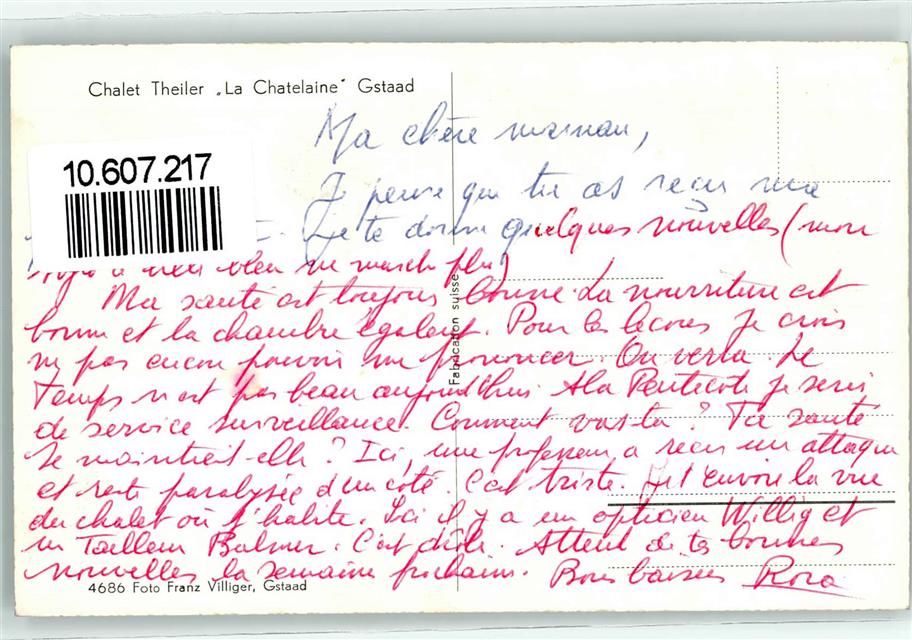 Chalet Theiler „La Chatelaine" Gstaad
10.607.217
Ma chère maman,
Je pense que tu as reçu ma
Je te donne quelques nouvelles (mon
bleu ne marche plus)
Ma santé est toujours bonne. La nourriture est
bonne et la chambre également. Pour les leçons je crois
ne pas encore pouvoir me prononcer. On verra. Le
Temps n'est pas beau aujourd'hui. A la Pentecôte je serai
de service surveillance. Comment vas-tu ? Ta santé
se maintient-elle ? Ici, une professeur a reçu un attaque
et reste paralysée d'un côté. C'est triste. Je t'envoie la vue
du chalet où j'habite. Ici il y a un opticien Willig et
un Tailleur Balmer. C'est drôle. Attend de tes bonnes
nouvelles la semaine prochaine. Bons baisers Rosa
Fabrication suisse
4686 Foto Franz Villiger, Gstaad